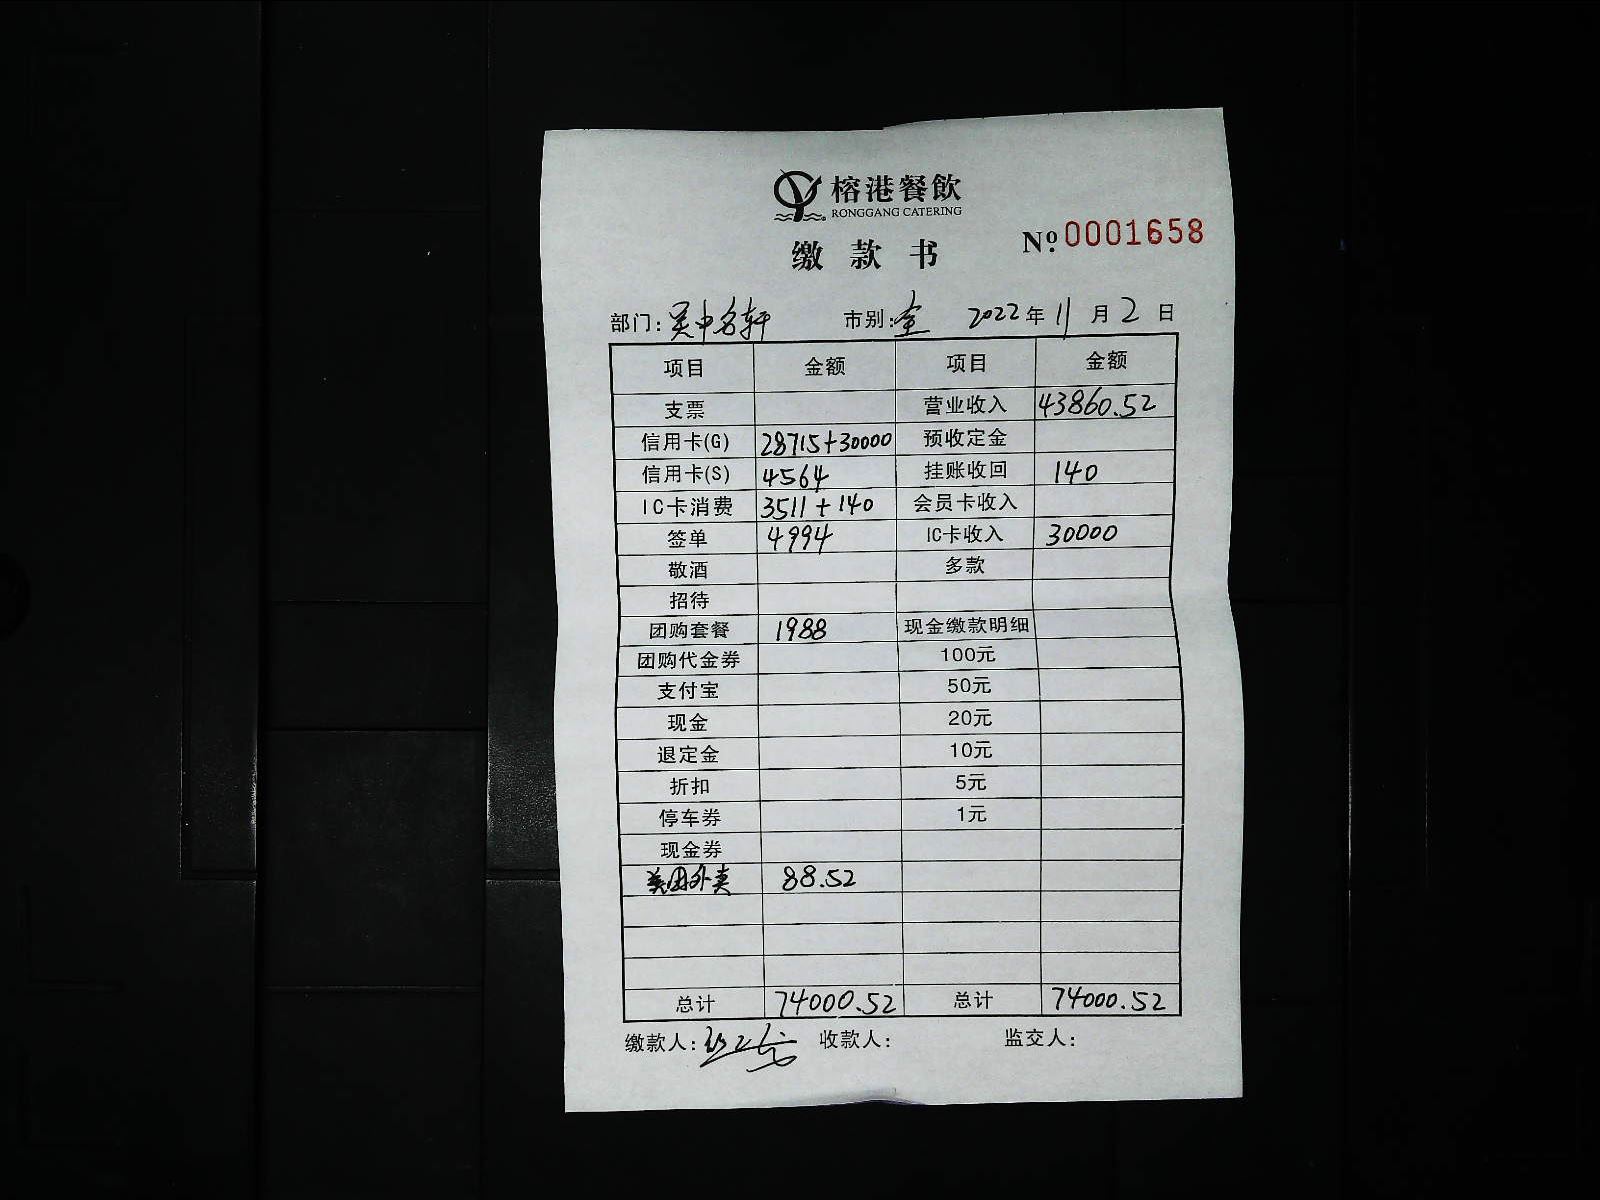 榕港餐飲
RONGGANG CATERING
缴款书
№ 0001658
部门：吴中名轩 市别：全 2022年11月2日
项目 金额 项目 金额
支票 营业收入 43860.52
信用卡(G) 28715+30000 预收定金
信用卡(S) 4564 挂账收回 140
IC卡消费 3511+140 会员卡收入
签单 4994 IC卡收入 30000
敬酒 多款
招待
团购套餐 1988 现金缴款明细
团购代金券 100元
支付宝 50元
现金 20元
退定金 10元
折扣 5元
停车券 1元
现金券
美团外卖 88.52
总计 74000.52 总计 74000.52
缴款人： 收款人： 监交人：